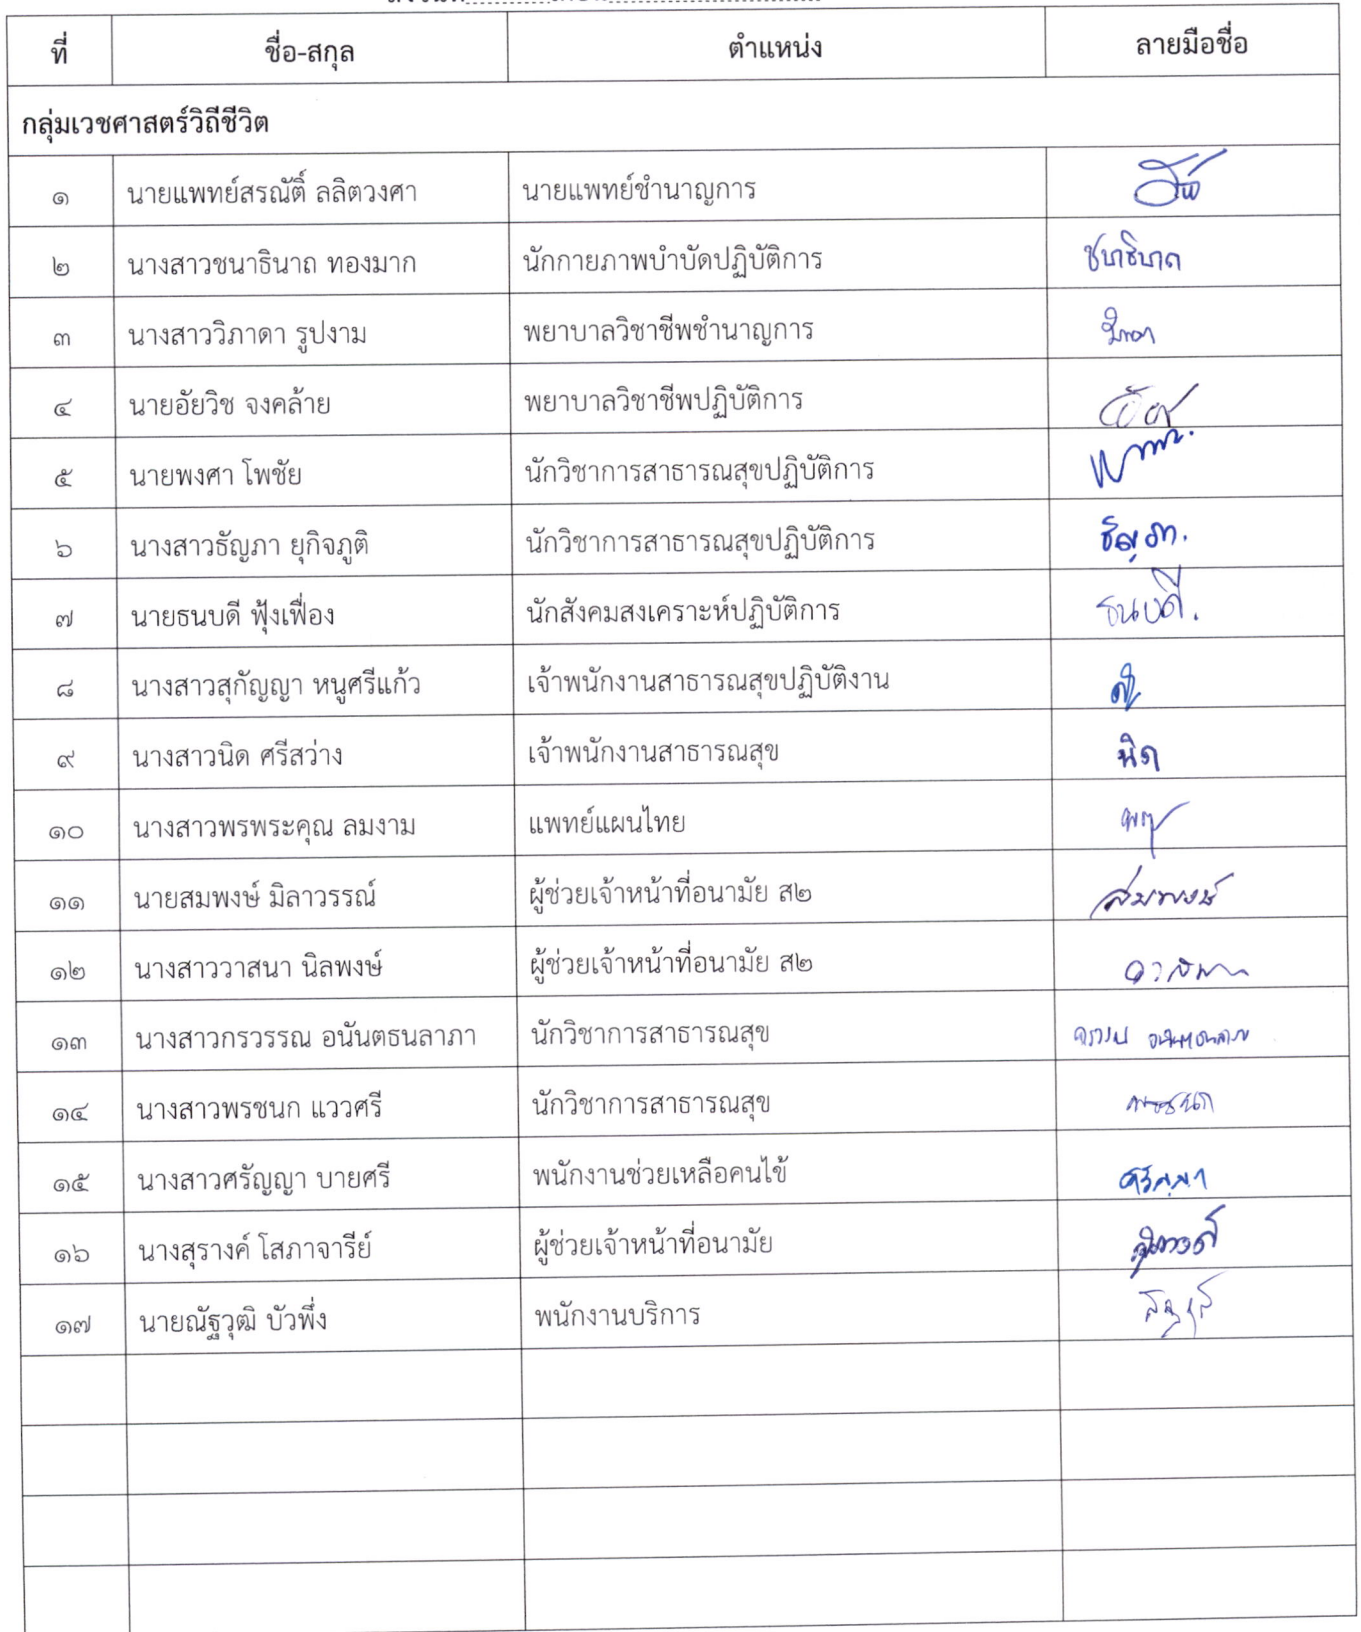 ที่ ชื่อ-สกุล ตำแหน่ง ลายมือชื่อ
กลุ่มเวชศาสตร์วิถีชีวิต
๑ นายแพทย์สรณัติ์ ลลิตวงศา นายแพทย์ชำนาญการ
๒ นางสาวชนาธินาถ ทองมาก นักกายภาพบำบัดปฏิบัติการ ชนาธินาถ
๓ นางสาววิภาดา รูปงาม พยาบาลวิชาชีพชำนาญการ
๔ นายอัยวิช จงคล้าย พยาบาลวิชาชีพปฏิบัติการ
๕ นายพงศา โพชัย นักวิชาการสาธารณสุขปฏิบัติการ
๖ นางสาวธัญภา ยุกิจภูติ นักวิชาการสาธารณสุขปฏิบัติการ ธัญภา.
๗ นายธนบดี ฟุ้งเฟื่อง นักสังคมสงเคราะห์ปฏิบัติการ ธนบดี.
๘ นางสาวสุกัญญา หนูศรีแก้ว เจ้าพนักงานสาธารณสุขปฏิบัติงาน
๙ นางสาวนิด ศรีสว่าง เจ้าพนักงานสาธารณสุข นิด
๑๐ นางสาวพรพระคุณ ลมงาม แพทย์แผนไทย
๑๑ นายสมพงษ์ มิลาวรรณ์ ผู้ช่วยเจ้าหน้าที่อนามัย ส๒ สมพงษ์
๑๒ นางสาววาสนา นิลพงษ์ ผู้ช่วยเจ้าหน้าที่อนามัย ส๒ วาสนา
๑๓ นางสาวกรวรรณ อนันตธนลาภา นักวิชาการสาธารณสุข
๑๔ นางสาวพรชนก แววศรี นักวิชาการสาธารณสุข พรชนก
๑๕ นางสาวศรัญญา บายศรี พนักงานช่วยเหลือคนไข้ ศรัญญา
๑๖ นางสุรางค์ โสภาจารีย์ ผู้ช่วยเจ้าหน้าที่อนามัย สุรางค์
๑๗ นายณัฐวุฒิ บัวพึ่ง พนักงานบริการ